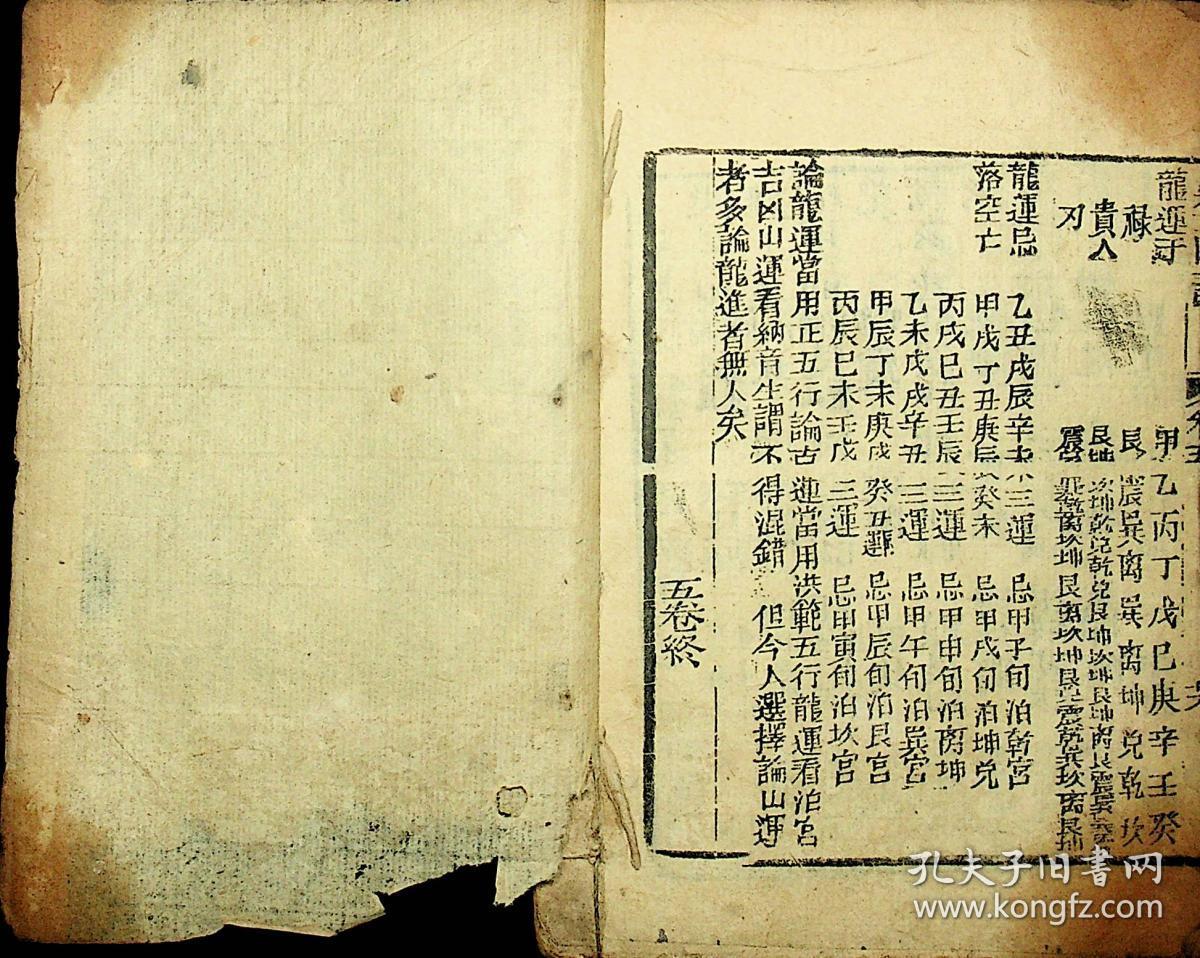 龍運于 甲乙丙丁戊巳庚辛壬癸
祿 艮震巽离巽离坤兑乾坎
貴人
刃
龍運忌 乙丑戊辰辛未三運 忌甲子旬泊乾宮
落空亡 甲戌丁丑庚辰癸未 忌甲戌旬泊坤兑
丙戌巳丑壬辰三運 忌甲申旬泊离坤
乙未戊戌辛丑三運 忌甲午旬泊巽宮
甲辰丁未庚戌癸丑運 忌甲辰旬泊艮宮
丙辰巳未壬戌三運 忌甲寅旬泊坎宮
論龍運當用正五行論古運當用洪範五行龍運看泊宮
吉凶山運看納音生謂不得混錯 但今人選擇論山運
者多論龍進者無人矣
五卷終
孔夫子旧书网
www.kongfz.com